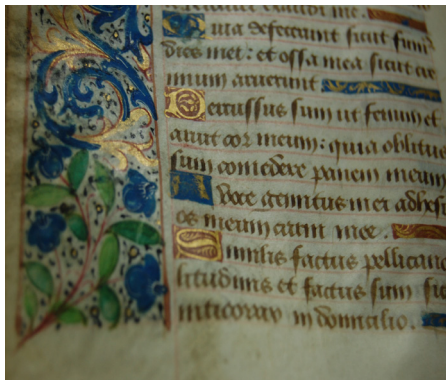 exaudi me.
Quia defecerunt sicut fum
dies mei: et ossa mea sicut cre
mium aruerunt
Percussus sum ut fenum et
aruit cor meum: quia oblitus
sum comedere panem meum
A voce gemitus mei adhesi
os meum carni mee.
Similis factus pellicano
litudinis et factus sum sic
nticorax in domicilio.